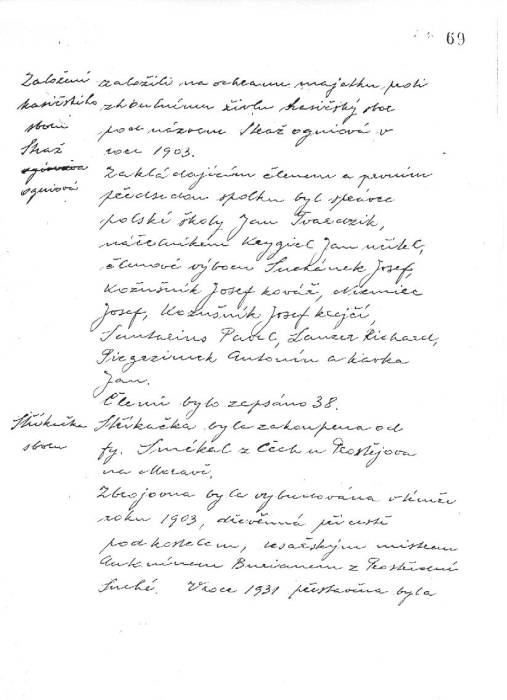 69
Založení
hasičského
sboru
Straž
ogniova
založili na ochranu majetku proti
zhoubnímu živlu hasičský sbor
pod názvem Straž ogniová v
roce 1903.
Zakládajícím členem a prvním
předsedou spolku byl správce
polské školy Jan Tvardzik,
náčelníkem Krygiel Jan učitel,
členové výboru Suchánek Josef,
Kožušník Josef kovář, Niemiec
Josef, Kožušník Josef krejčí,
Santarius Pavel, Lanzer Richard,
Antonín a Kavka
Jan.
Členů bylo zapsáno 38.
Stříkačka
sboru
Stříkačka byla zakoupena od
fy. Smékal z Čech u Prostějova
na Moravě.
Zbrojovna byla vybudována v témže
roku 1903, dřevěnná při cestě
pod kostelem, tesařským mistrem
Antonínem Burianem z Prostřední
Suché. V roce 1931 přestavěna byla